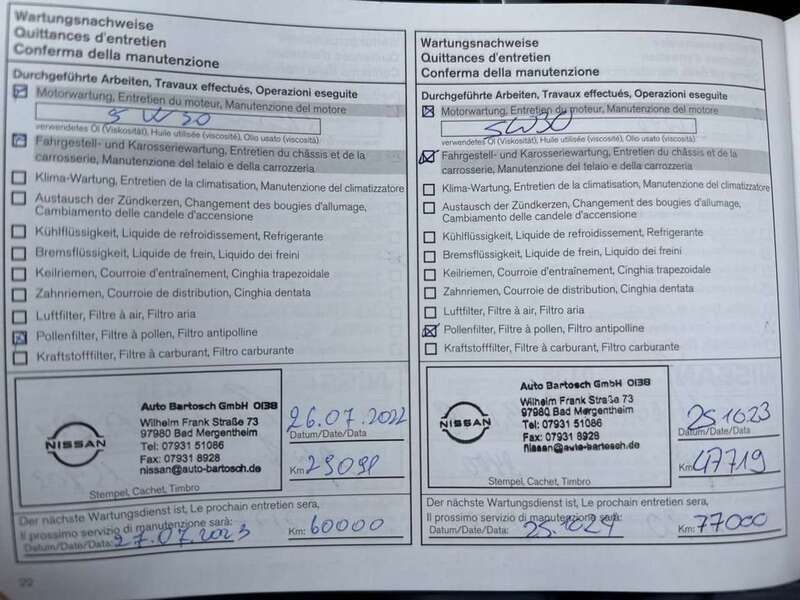 Wartungsnachweise
Quittances d'entretien
Conferma della manutenzione
Durchgeführte Arbeiten, Travaux effectués, Operazioni eseguite
Motorwartung, Entretien du moteur, Manutenzione del motore
5W30
verwendetes Öl (Viskosität), Huile utilisée (viscosité), Olio usato (viscosità)
Fahrgestell- und Karosseriewartung, Entretien du châssis et de la
carrosserie, Manutenzione del telaio e della carrozzeria
Klima-Wartung, Entretien de la climatisation, Manutenzione del climatizzatore
Austausch der Zündkerzen, Changement des bougies d'allumage,
Cambiamento delle candele d'accensione
Kühlflüssigkeit, Liquide de refroidissement, Refrigerante
Bremsflüssigkeit, Liquide de frein, Liquido dei freini
Keilriemen, Courroie d'entraînement, Cinghia trapezoidale
Zahnriemen, Courroie de distribution, Cinghia dentata
Luftfilter, Filtre à air, Filtro aria
Pollenfilter, Filtre à pollen, Filtro antipolline
Kraftstofffilter, Filtre à carburant, Filtro carburante
NISSAN
Auto Bartosch GmbH 0138
Wilhelm Frank Straße 73
97980 Bad Mergentheim
Tel: 07931 51086
Fax: 07931 8928
nissan@auto-bartosch.de
Stempel, Cachet, Timbro
26.07.2022
Datum/Date/Data
Km 29091
Der nächste Wartungsdienst ist, Le prochain entretien sera,
Il prossimo servizio di manutenzione sarà:
Datum/Date/Data: 27.07.2023 Km: 60000
22
Wartungsnachweise
Quittances d'entretien
Conferma della manutenzione
Durchgeführte Arbeiten, Travaux effectués, Operazioni eseguite
Motorwartung, Entretien du moteur, Manutenzione del motore
5W30
verwendetes Öl (Viskosität), Huile utilisée (viscosité), Olio usato (viscosità)
Fahrgestell- und Karosseriewartung, Entretien du châssis et de la
carrosserie, Manutenzione del telaio e della carrozzeria
Klima-Wartung, Entretien de la climatisation, Manutenzione del climatizzatore
Austausch der Zündkerzen, Changement des bougies d'allumage,
Cambiamento delle candele d'accensione
Kühlflüssigkeit, Liquide de refroidissement, Refrigerante
Bremsflüssigkeit, Liquide de frein, Liquido dei freini
Keilriemen, Courroie d'entraînement, Cinghia trapezoidale
Zahnriemen, Courroie de distribution, Cinghia dentata
Luftfilter, Filtre à air, Filtro aria
Pollenfilter, Filtre à pollen, Filtro antipolline
Kraftstofffilter, Filtre à carburant, Filtro carburante
NISSAN
Auto Bartosch GmbH 0138
Wilhelm Frank Straße 73
97980 Bad Mergentheim
Tel: 07931 51086
Fax: 07931 8928
nissan@auto-bartosch.de
Stempel, Cachet, Timbro
25.10.23
Datum/Date/Data
Km 47719
Der nächste Wartungsdienst ist, Le prochain entretien sera,
Il prossimo servizio di manutenzione sarà:
Datum/Date/Data: 25.10.24 Km: 77000